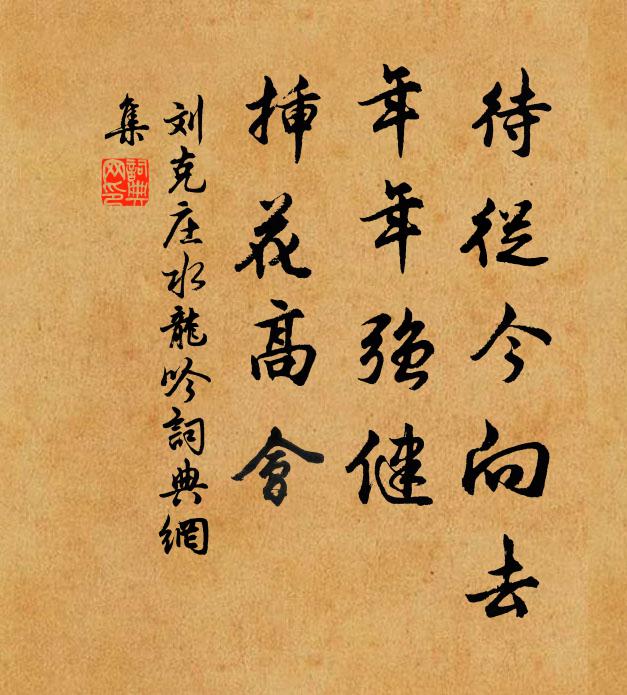 待從今向去
年年強健
挿花高會
刘克庄水龍吟詞典網
集
詞典网印